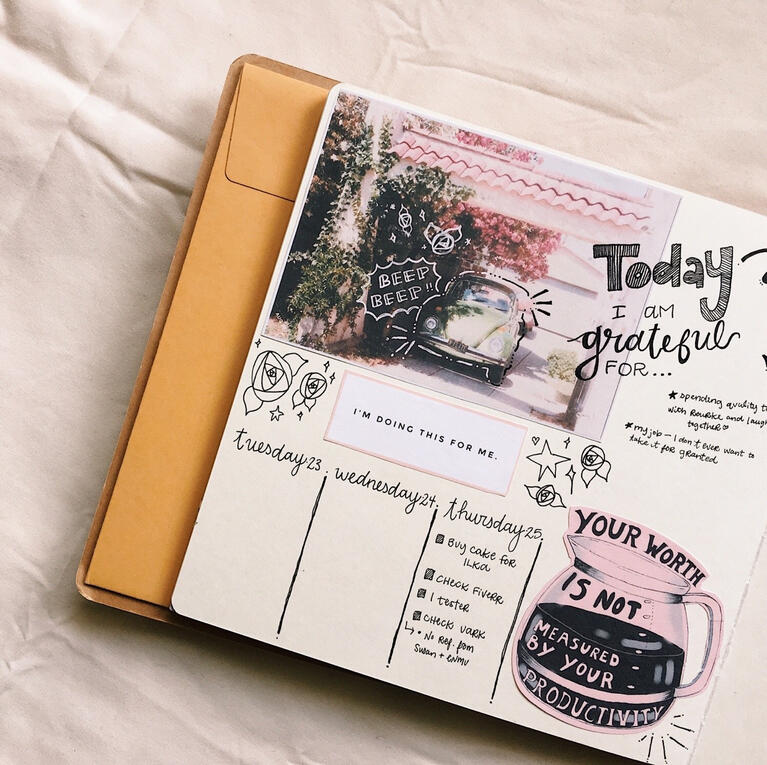 BEEP
BEEP!!
Today
I AM
grateful
FOR...
★ spending quality
with Rourke and laugh
together
★ my job — I don't ever want to
take it for granted
I'M DOING THIS FOR ME.
tuesday 23.
wednesday 24.
thursday 25.
BUY CAKE FOR
ILKA
CHECK FIVERR
1 TESTER
CHECK VARK
↳ • No Ref. from
Swan + WNMU
YOUR WORTH
IS NOT
MEASURED
BY YOUR
PRODUCTIVITY